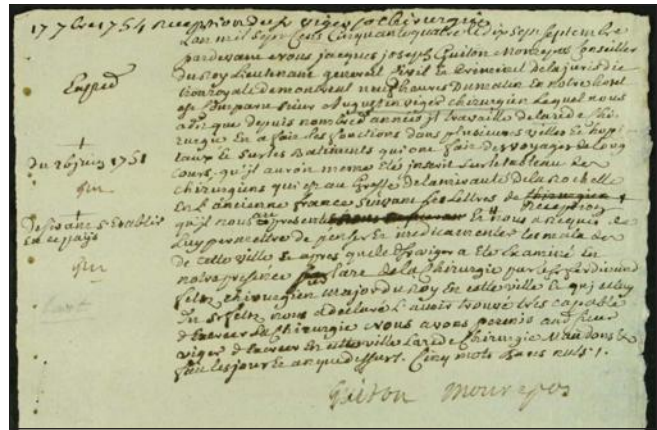 17 7bre 1754 Reception du Sr viger en chirurgie
Lan mil sept cens Cinquante quatre Le dix sept septembre
pardevant nous jacques joseph Guiton Monrepos Conseiller
du Roy Lieutenant general Civil et Criminel de la jurisdic
tion royalle de montreal neuf heures Du matin En notre hotel
est Comparu sieur augustin viger chirurgien Lequel nous
a dit que depuis nombre d'années jl travaille de lart de chi-
rurgie En a fait les fonctions dans plusieurs villes et hopi-
taux et sur les Batiments qui ont fait des voyages de long
Cours, qu'il auroit meme eté inscrit sur le tableau des
chirurgiens qui est au Greffe de lamirauté de la Rochelle
En L'ancienne france suivant Les Lettres de chirurgien
Reception
qu'il nous a representé Et nous a Requis de
Luy permettre de penser et medicamenter les malades
de cette ville Et apres que led. Sr viger a Eté Examiné En
notre presence sur lart de la Chirurgie par le Sr ferdinand
feltz chirurgien Major du Roy En cette ville Et qu'j celuy
Sr feltz nous a declaré L'avoir trouvé très capable
d'Exercer la Chirurgie nous avons permis aud. sieur
viger d'Exercer En cette ville Lart de Chirurgie Mandons &
fait les jour Et an que dessus. Cinq mots rayés nuls.
Guiton Monrepos
Exped
du 26 juin 1751
Desirant s'establir
En ce pays